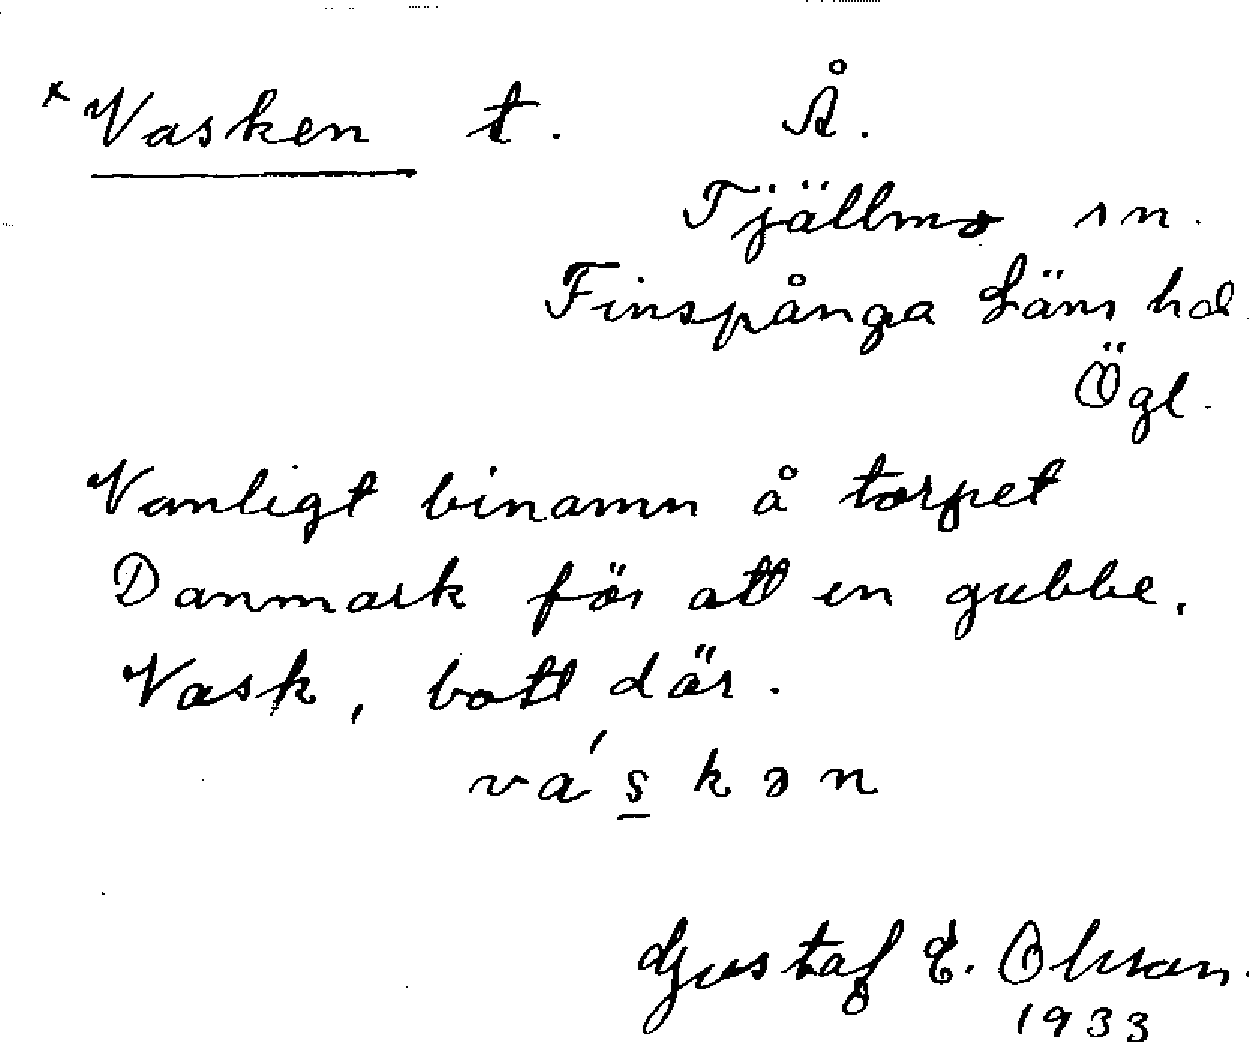 × Vasken t. Å.
Tjällmo sn.
Finspånga Läns hd.
Ögl.
Vanligt binamn å torpet
Danmark för att en gubbe,
Vask, bott där.
va´s̲kən
Gustaf E. Olsson.
1933